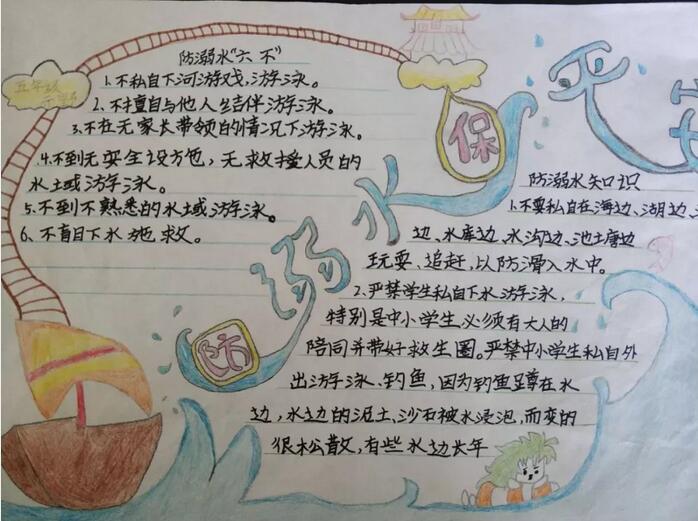 防溺水保平
五年级
防溺水“六不”
1.不私自下河游戏,游泳。
2.不擅自与他人结伴游泳。
3.不在无家长带领的情况下游泳。
4.不到无安全设施,无救援人员的
水域游泳。
5.不到不熟悉的水域游泳。
6、不盲目下水施救。
防溺水知识
1.不要私自在海边、湖边、
边、水库边、水沟边、池塘边
玩耍、追赶,以防滑入水中。
2.严禁学生私自下水游泳,
特别是中小学生必须有大人的
陪同并带好救生圈。严禁中小学生私自外
出游泳、钓鱼,因为钓鱼蹲在水
边,水边的泥土、沙石被水浸泡,而变的
很松散,有些水边长年